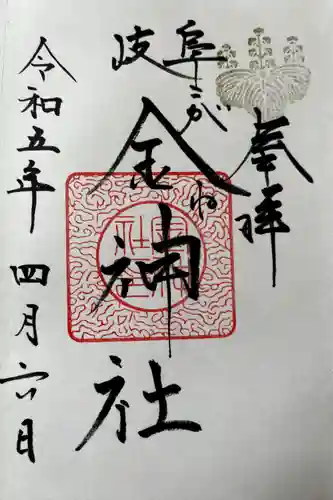 奉拝
岐阜
こがね
金神社
令和五年 四月六日